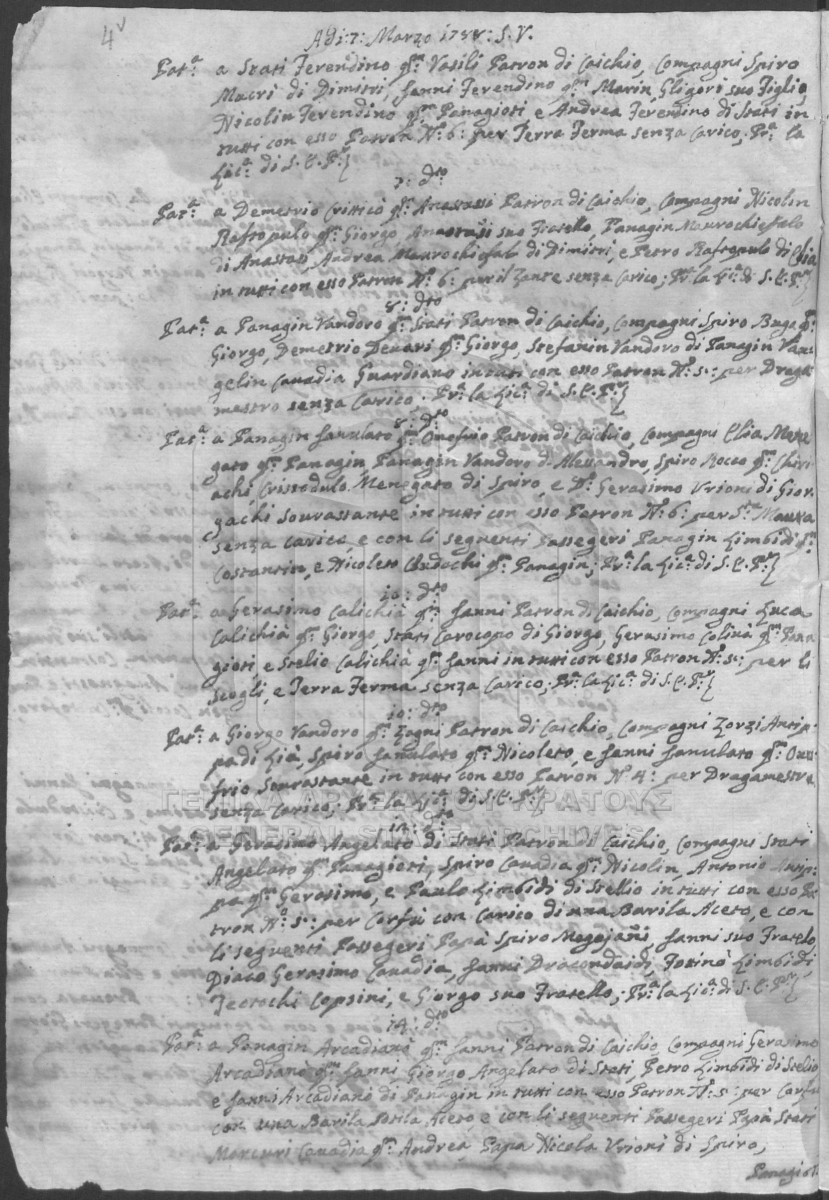 4v
Adi: 7: Marzo 1788: S. V.
Pat.ª a Stati Ferendino q.m Vasili Patron di Caichio, Compagni Spiro
Macri di Dimitri, Janni Ferendino q.m Marin, Gligori suo Figlio,
Nicolin Ferendino q.m Panagioti e Andrea Ferendino di Stati in
tutti con esso Patron N.º 6: per Terra Ferma senza Carico, Pr.ª la
Lic.ª di S. E. P.r
7: dto
Pat.ª a Demetrio Critticò q.m Anastassi Patron di Caichio, Compagni Nicolin
Raftopulo q.m Giorgo Anastasi suo Fratello, Panagin Maurochiefalo
di Anastasi Andrea Maurochiefalo di Dimitri, e Petro Raftopulo di Elia
in tutti con esso Patron N.º 6: per il Zante senza Carico; Pr.ª la Lic.ª di S. E. P.r
8: dto
Pat.ª a Panagin Vandoro q.m Stati Patron di Caichio, Compagni Spiro Buga q.m
Giorgo, Demetrio Devari q.m Giorgo, Stefanin Vandoro di Panagin Van-
gelin Canadia Guardiano in tutti con esso Patron N.º 5: per Draga-
mestro senza Carico. Pr.ª la Lic.ª di S. E. P.r
8: dto
Pat.ª a Panagin Janulato q.m Onofrio Patron di Caichio, Compagni Elia Mene-
gato q.m Panagin Panagin Vandoro di Alessandro, Spiro Rocco q.m Chiri-
achi, Cristodulo Menegato di Spiro, e D.n Gerasimo Vrioni di Gior-
gachi Sourastante in tutti con esso Patron N.º 6: per S.ta Maura
senza Carico, e con li seguenti Passegeri Panagin Limbidi q.m
Costantin, e Nicoleto q.m Panagin; Pr.ª la Lic.ª di S. E. P.r
10: dto
Pat.ª a Gerasimo Calichià q.m Janni Patron di Caichio, Compagni Luca
Calichià q.m Giorgo, Stati Carocopo di Giorgo, Gerasimo Colivà q.m Pana-
gioti, e Stelio Calichià q.m Janni in tutti con esso Patron N.º 5: per li
Scogli, e Terra Ferma senza Carico; Pr.ª la Lic.ª di S. E. P.r
10: dto
Pat.ª a Giorgo Vandoro q.m Zogni Patron di Caichio, Compagni Zorzi Antip-
pa di Lià, Spiro Janulato q.m Nicoleto, e Janni Janulato q.m Onof-
frio Sourastante in tutti con esso Patron N.º 4: per Dragamestro
senza Carico; Pr.ª la Lic.ª di S. E. P.r
ΓΕΝΙΚΑ ΑΡΧΕΙΑ ΤΟΥ ΚΡΑΤΟΥΣ
GENERAL STATE ARCHIVES
14: dto
Pat.ª a Gerasimo Angelato di Stati Patron di Caichio, Compagni Stati
Angelato q.m Panagioti, Spiro Canadia q.m Nicolin, Antonio Antip-
pa q.m Gerasimo, e Paulo Limbidi di Stelio in tutti con esso Pa-
tron N.º 5: per Corfù con Carico di una Barila Aceto, e con
li seguenti Passegeri Papà Spiro Megajañi, Janni suo Fratelo,
Diaco Gerasimo Canadia, Janni Dracondaidi, Fotinò Limbidi
Copsini, e Giorgo suo Fratello; Pr.ª la Lic.ª di S. E. P.r
14: dto
Pat.ª a Panagin Arcadianò q.m Janni Patron di Caichio Compagni Gerasimo
Arcadiano q.m Janni, Giorgo Angelato di Stati, Petro Limbidi di Stelio
e Janni Arcadianò di Panagin in tutti con esso Patron N.º 5: per Corfù
con una Barila Sotila Aceto e con li seguenti Passegeri Papà Stati
Mercuri Canadia q.m Andrea Papa Nicola Vrioni di Spiro,
Panagioti